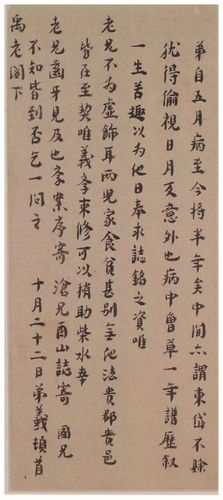 弟自五月病至今將半年矣中間亦謂東岱不賒
犹得偷視日月意外也病中曾草一年譜歷叙
一生苦趣以為他日奉求誌銘之資唯
老兄不為虛飾耳兩兒家食貧甚別無他法貴郡貴邑
皆在至契唯義學束修可以稍助柴水幸
老兄齒牙見及也序寄 滄兄酉山誌寄 國兄
不知皆到否乞一問之 十月二十二日弟羲頓首
禹老閣下